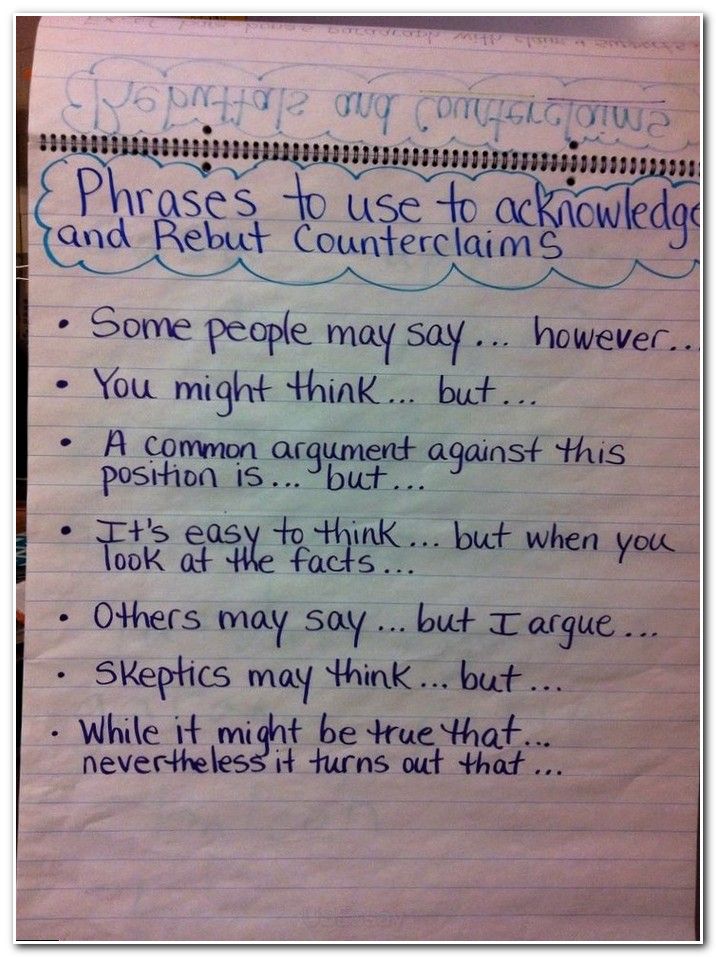 Rebuttals and Counterclaims
Phrases to use to acknowledge
and Rebut Counterclaims
• Some people may say... however...
• You might think... but...
• A common argument against this
position is... but...
• It's easy to think... but when you
look at the facts...
• Others may say... but I argue...
• Skeptics may think... but...
• While it might be true that...
nevertheless it turns out that...